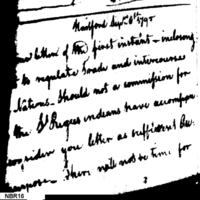 Hartford Sept. 6th 1795
letter of the first instant - inclosing
to regulate Trade and intercourse
Nations. Should not a commission for
the St Regies indeans have accompan
consider you letter as sufficient Au
purpose. There will not be time for
NBR16